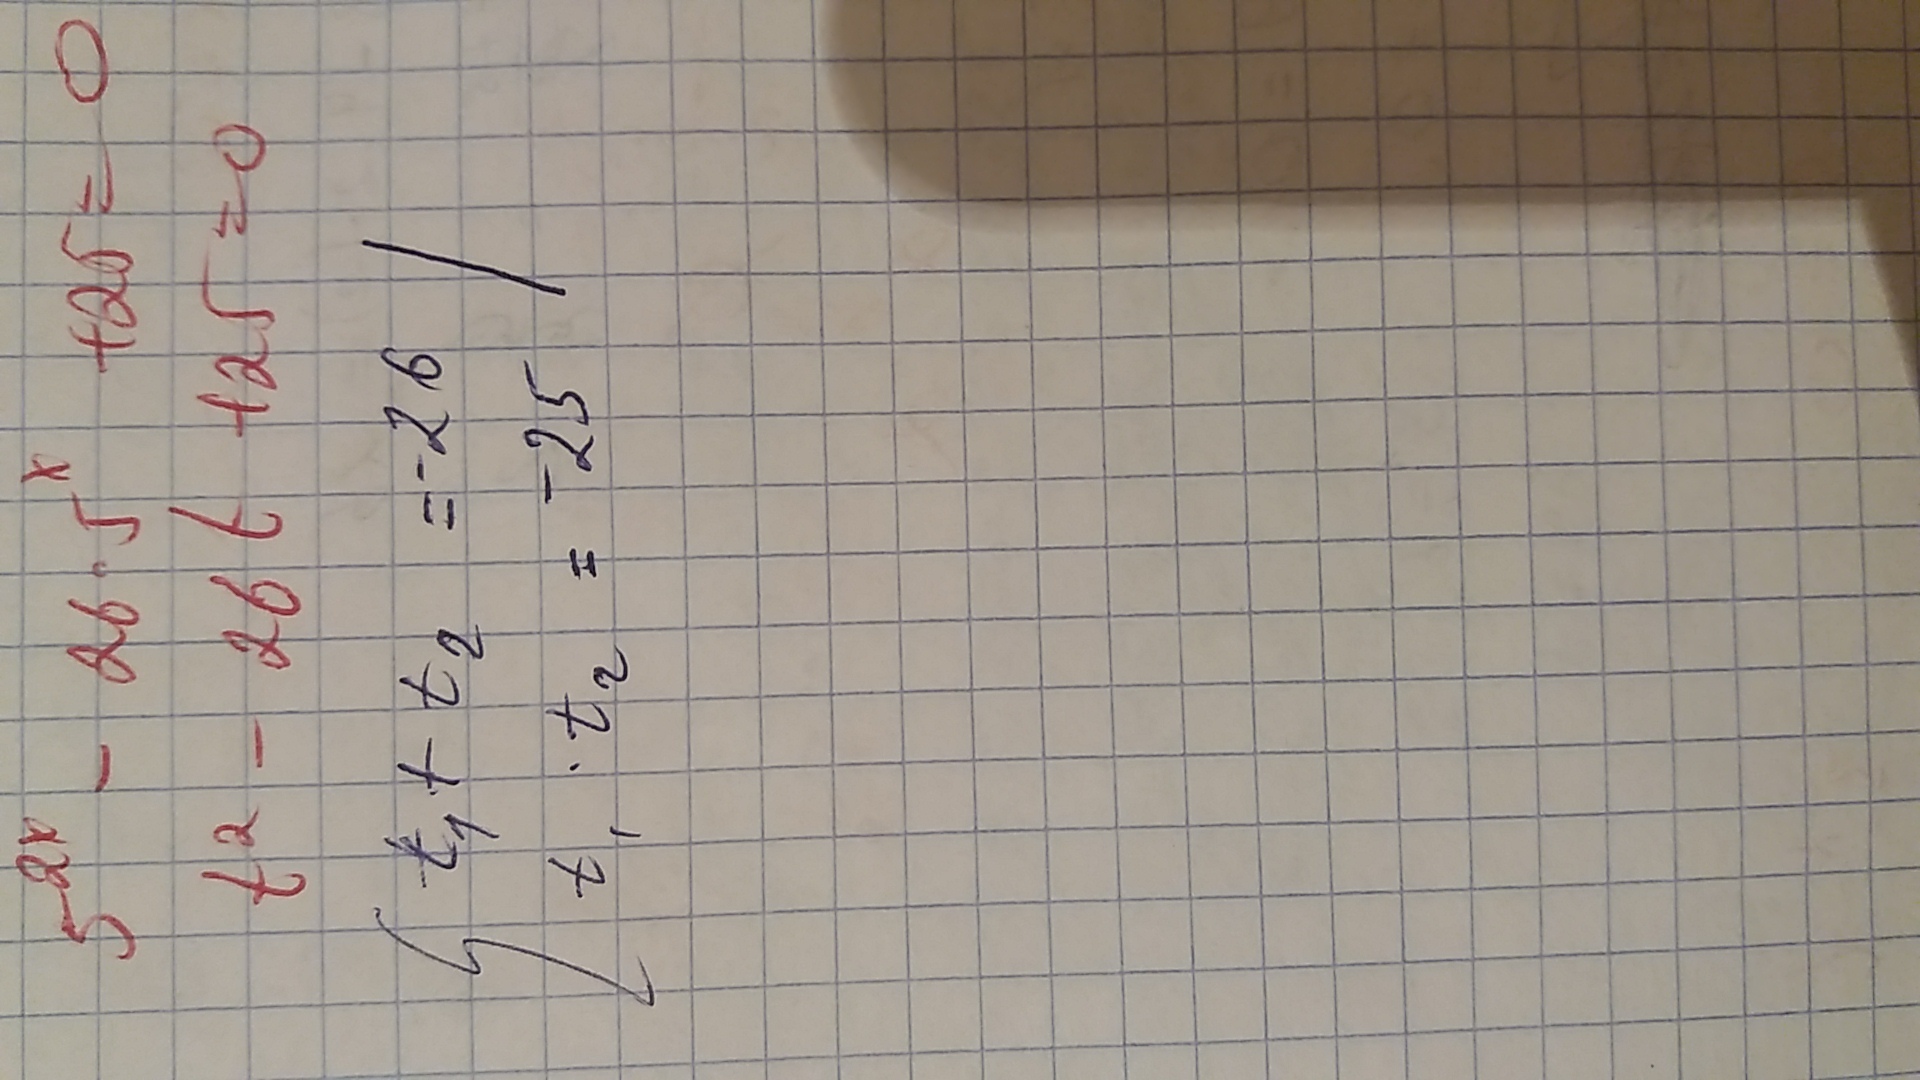 5^2x - 26·5^x +25=0
t^2 - 26t +25=0
{ t_1 + t_2 = -26 /
t_1 · t_2 = -25